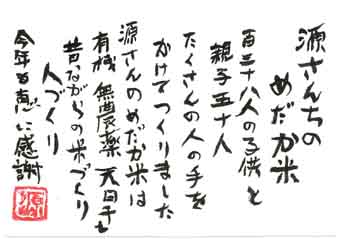 源さんちの
めだか米
百三十八人の子供と
親子五十人
たくさんの人の手を
かけてつくりました
源さんのめだか米は
有機 無農薬 天日干し
昔ながらの米づくり
人づくり
今年も恵に感謝